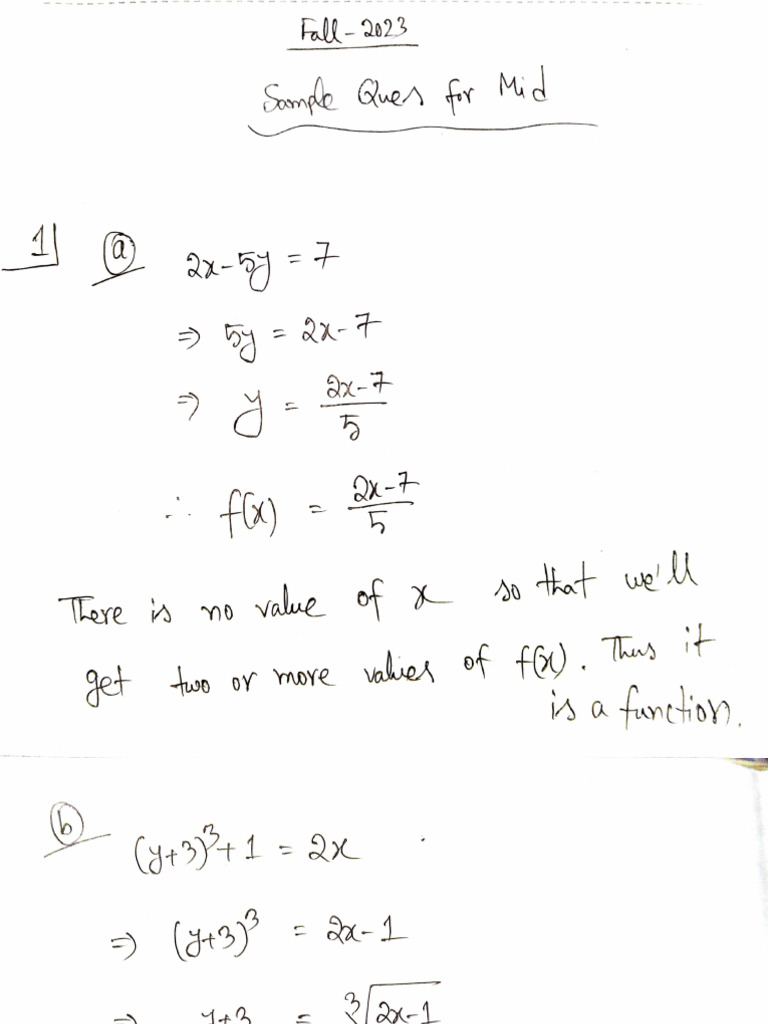 Fall-2023
Sample Ques for Mid
1 (a) 2x-5y = 7
⇒ 5y = 2x-7
⇒ y = (2x-7)/5
∴ f(x) = (2x-7)/5
There is no value of x so that we'll
get two or more values of f(x). Thus it
is a function.
(b) (y+3)³+1 = 2x
⇒ (y+3)³ = 2x-1
⇒ y+3 = ∛(2x-1)